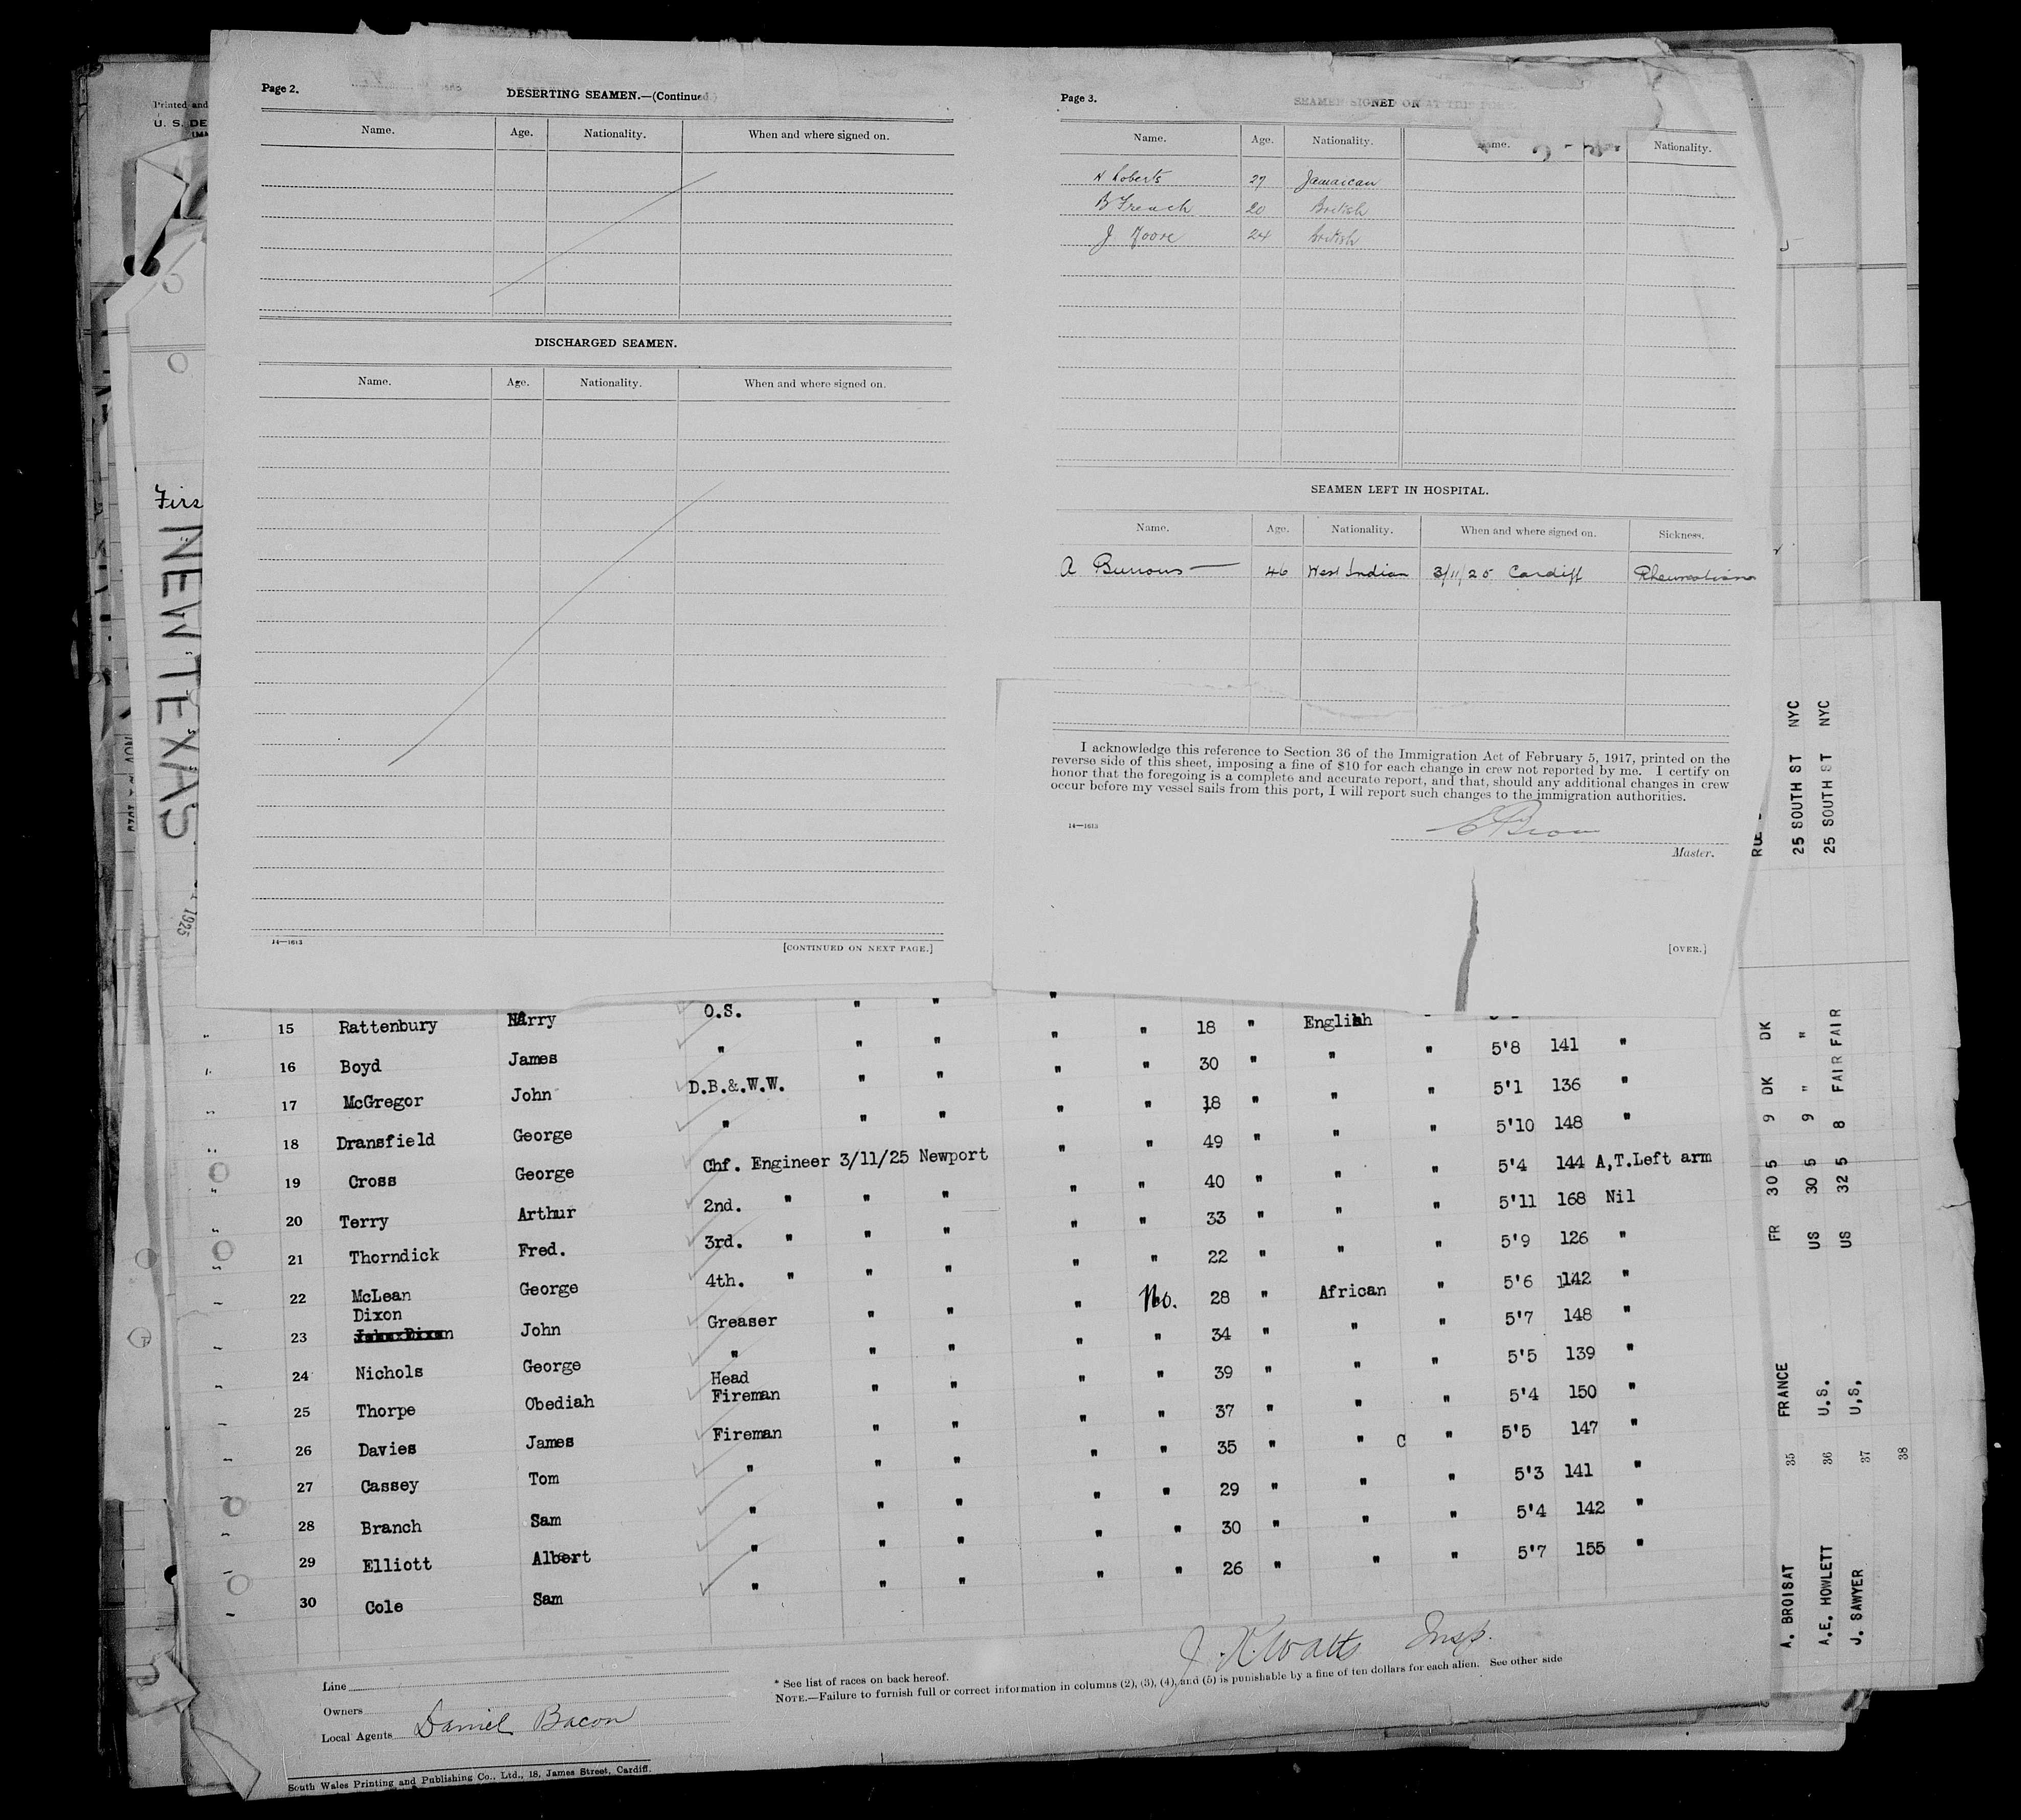 Printed and
U. S. DE
Firs
NEW TEXAS
1925
Page 2.
DESERTING SEAMEN.—(Continued.)
Name. Age. Nationality. When and where signed on.
DISCHARGED SEAMEN.
Name. Age. Nationality. When and where signed on.
14—1613
[CONTINUED ON NEXT PAGE.]
Page 3.
SEAMEN SIGNED ON AT THIS
Name. Age. Nationality. Name. Nationality.
H Roberts 27 Jamaican
B French 20 British
J Moore 24 British
SEAMEN LEFT IN HOSPITAL.
Name. Age. Nationality. When and where signed on. Sickness.
A Burrows 46 West Indian 3/11/25 Cardiff Rheumatism
I acknowledge this reference to Section 36 of the Immigration Act of February 5, 1917, printed on the
reverse side of this sheet, imposing a fine of $10 for each change in crew not reported by me. I certify on
honor that the foregoing is a complete and accurate report, and that, should any additional changes in crew
occur before my vessel sails from this port, I will report such changes to the immigration authorities.
14—1613
Master.
[OVER.]
15 Rattenbury Harry O.S. " " " " 18 " English "
16 Boyd James " " " " " 30 " " " 5'8 141 "
17 McGregor John D.B.&.W.W. " " " " 18 " " " 5'1 136 "
18 Dransfield George " " " " " 49 " " " 5'10 148 "
19 Cross George Chf. Engineer 3/11/25 Newport " " 40 " " " 5'4 144 A,T.Left arm
20 Terry Arthur 2nd. " " " " " 33 " " " 5'11 168 Nil
21 Thorndick Fred. 3rd. " " " " " 22 " " " 5'9 126 "
22 McLean George 4th. " " " " No. 28 " African " 5'6 142 "
Dixon
23 John Greaser " " " " 34 " " " 5'7 148 "
24 Nichols George " " " " " 39 " " " 5'5 139 "
25 Thorpe Obediah Head Fireman " " " " 37 " " " 5'4 150 "
26 Davies James Fireman " " " " 35 " " C " 5'5 147 "
27 Cassey Tom " " " " " 29 " " " 5'3 141 "
28 Branch Sam " " " " " 30 " " " 5'4 142 "
29 Elliott Albert " " " " " 26 " " " 5'7 155 "
30 Cole Sam " " "
J. K. Watts Insp.
Line
Owners
Local Agents Daniel Bacon
* See list of races on back hereof.
NOTE.—Failure to furnish full or correct information in columns (2), (3), (4), and (5) is punishable by a fine of ten dollars for each alien. See other side
South Wales Printing and Publishing Co., Ltd., 18, James Street, Cardiff.
A. BROISAT 35 FRANCE FR 30 5 9 DK DK
A.E. HOWLETT 36 U.S. US 30 5 9 " " 25 SOUTH ST NYC
J. SAWYER 37 U.S. US 32 5 8 FAIR FAIR 25 SOUTH ST NYC
38